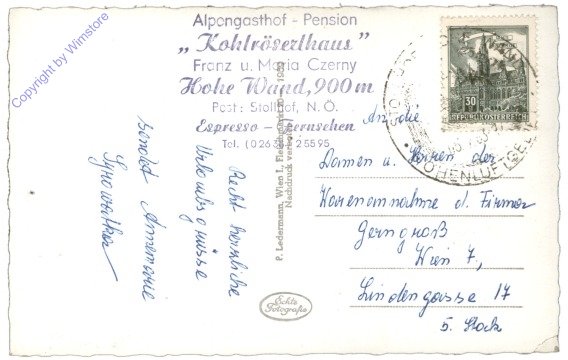 Copyright by Wimstore
Alpengasthof - Pension
„Kohlröserlhaus"
Franz u. Maria Czerny
Hohe Wand, 900 m
Post: Stollhof, N. Ö.
Espresso - Fernsehen
Tel. (02638) 25595
30
REPUBLIK ÖSTERREICH
HÖHENLUFT
P. Ledermann, Wien I., Fleischmarkt
Nachdruck verboten
Echte
Fotografie
Recht herzliche
Urlaubsgrüsse
sendet Annemarie
An die
Damen u. Herren der
Warenannahme d. Firma
Gerngroß
Wien 7.,
Lindengasse 17
5. Stock